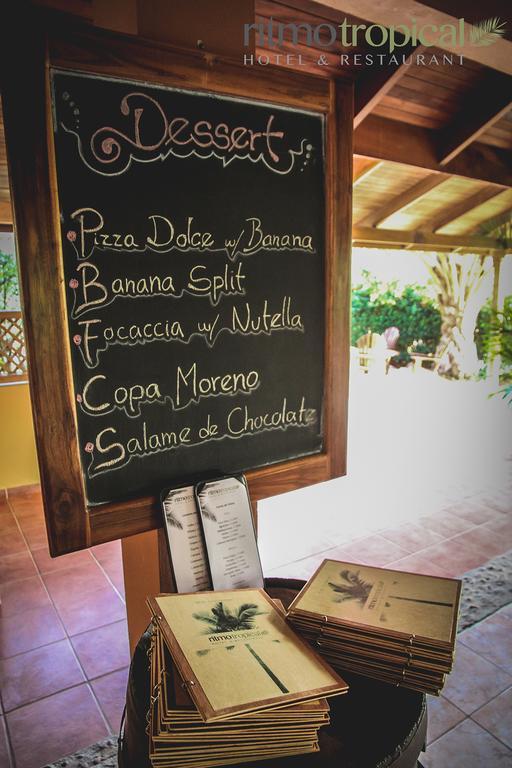 ritmotropical
HOTEL & RESTAURANT
Dessert
Pizza Dolce w/ Banana
Banana Split
Focaccia w/ Nutella
Copa Moreno
Salame de Chocolate
ritmotropical
ritmotropical